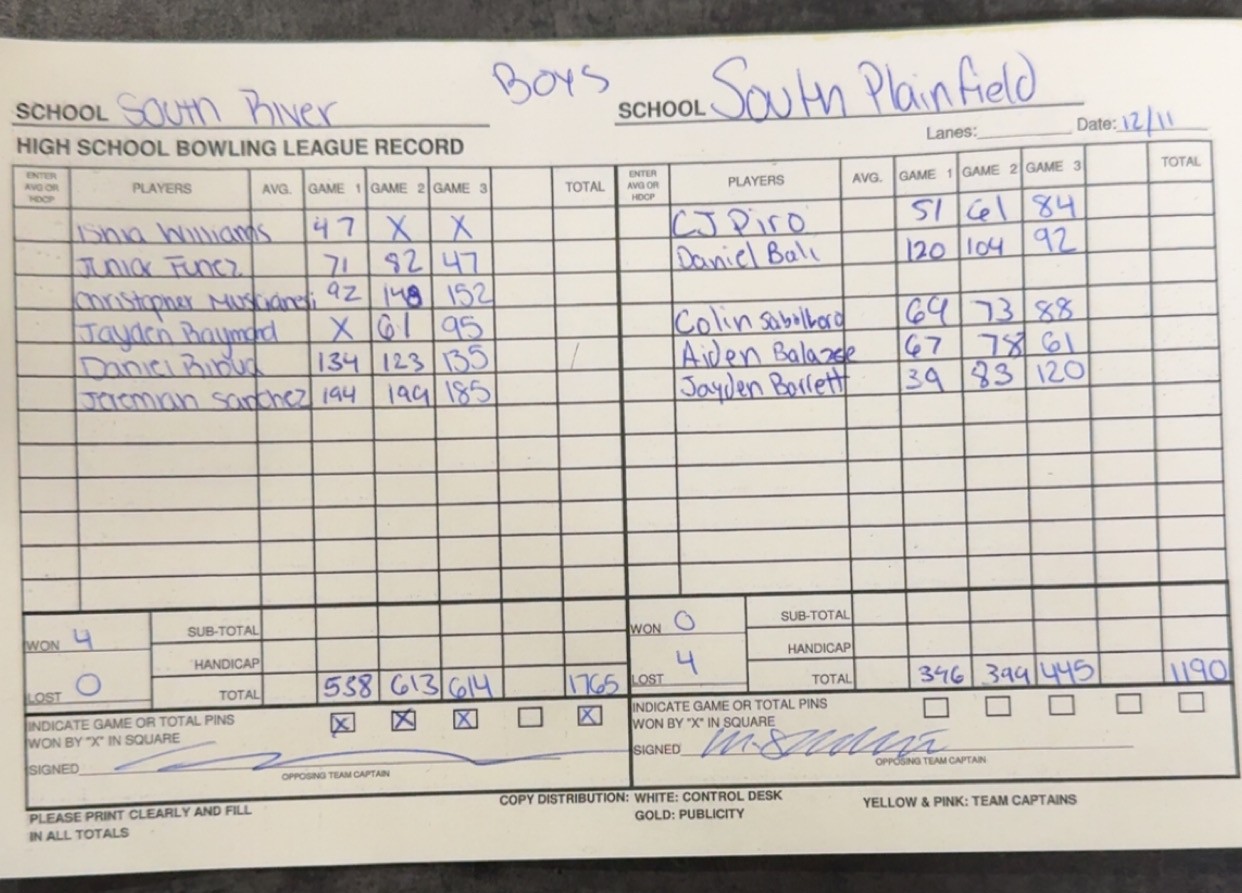 Boys
SCHOOL South River SCHOOL South Plainfield
Lanes: Date: 12/11
HIGH SCHOOL BOWLING LEAGUE RECORD
ENTER AVG OR HDCP PLAYERS AVG. GAME 1 GAME 2 GAME 3 TOTAL ENTER AVG OR HDCP PLAYERS AVG. GAME 1 GAME 2 GAME 3 TOTAL
Williams 47 X X CJ Piro 51 61 84
Junior Funez 71 82 47 Daniel Bali 120 104 92
Christopher 92 148 152
Jayden Raymond X 61 95 Colin 69 73 88
Daniel 134 123 135 Aiden 67 78 61
Jeremiah Sanchez 194 199 185 Jayden Barrett 39 83 120
WON 4 SUB-TOTAL WON 0 SUB-TOTAL
HANDICAP HANDICAP
LOST 0 TOTAL 538 613 614 1765 LOST 4 TOTAL 346 399 445 1190
INDICATE GAME OR TOTAL PINS X X X X INDICATE GAME OR TOTAL PINS
WON BY "X" IN SQUARE WON BY "X" IN SQUARE
SIGNED SIGNED
OPPOSING TEAM CAPTAIN OPPOSING TEAM CAPTAIN
PLEASE PRINT CLEARLY AND FILL COPY DISTRIBUTION: WHITE: CONTROL DESK YELLOW & PINK: TEAM CAPTAINS
IN ALL TOTALS GOLD: PUBLICITY